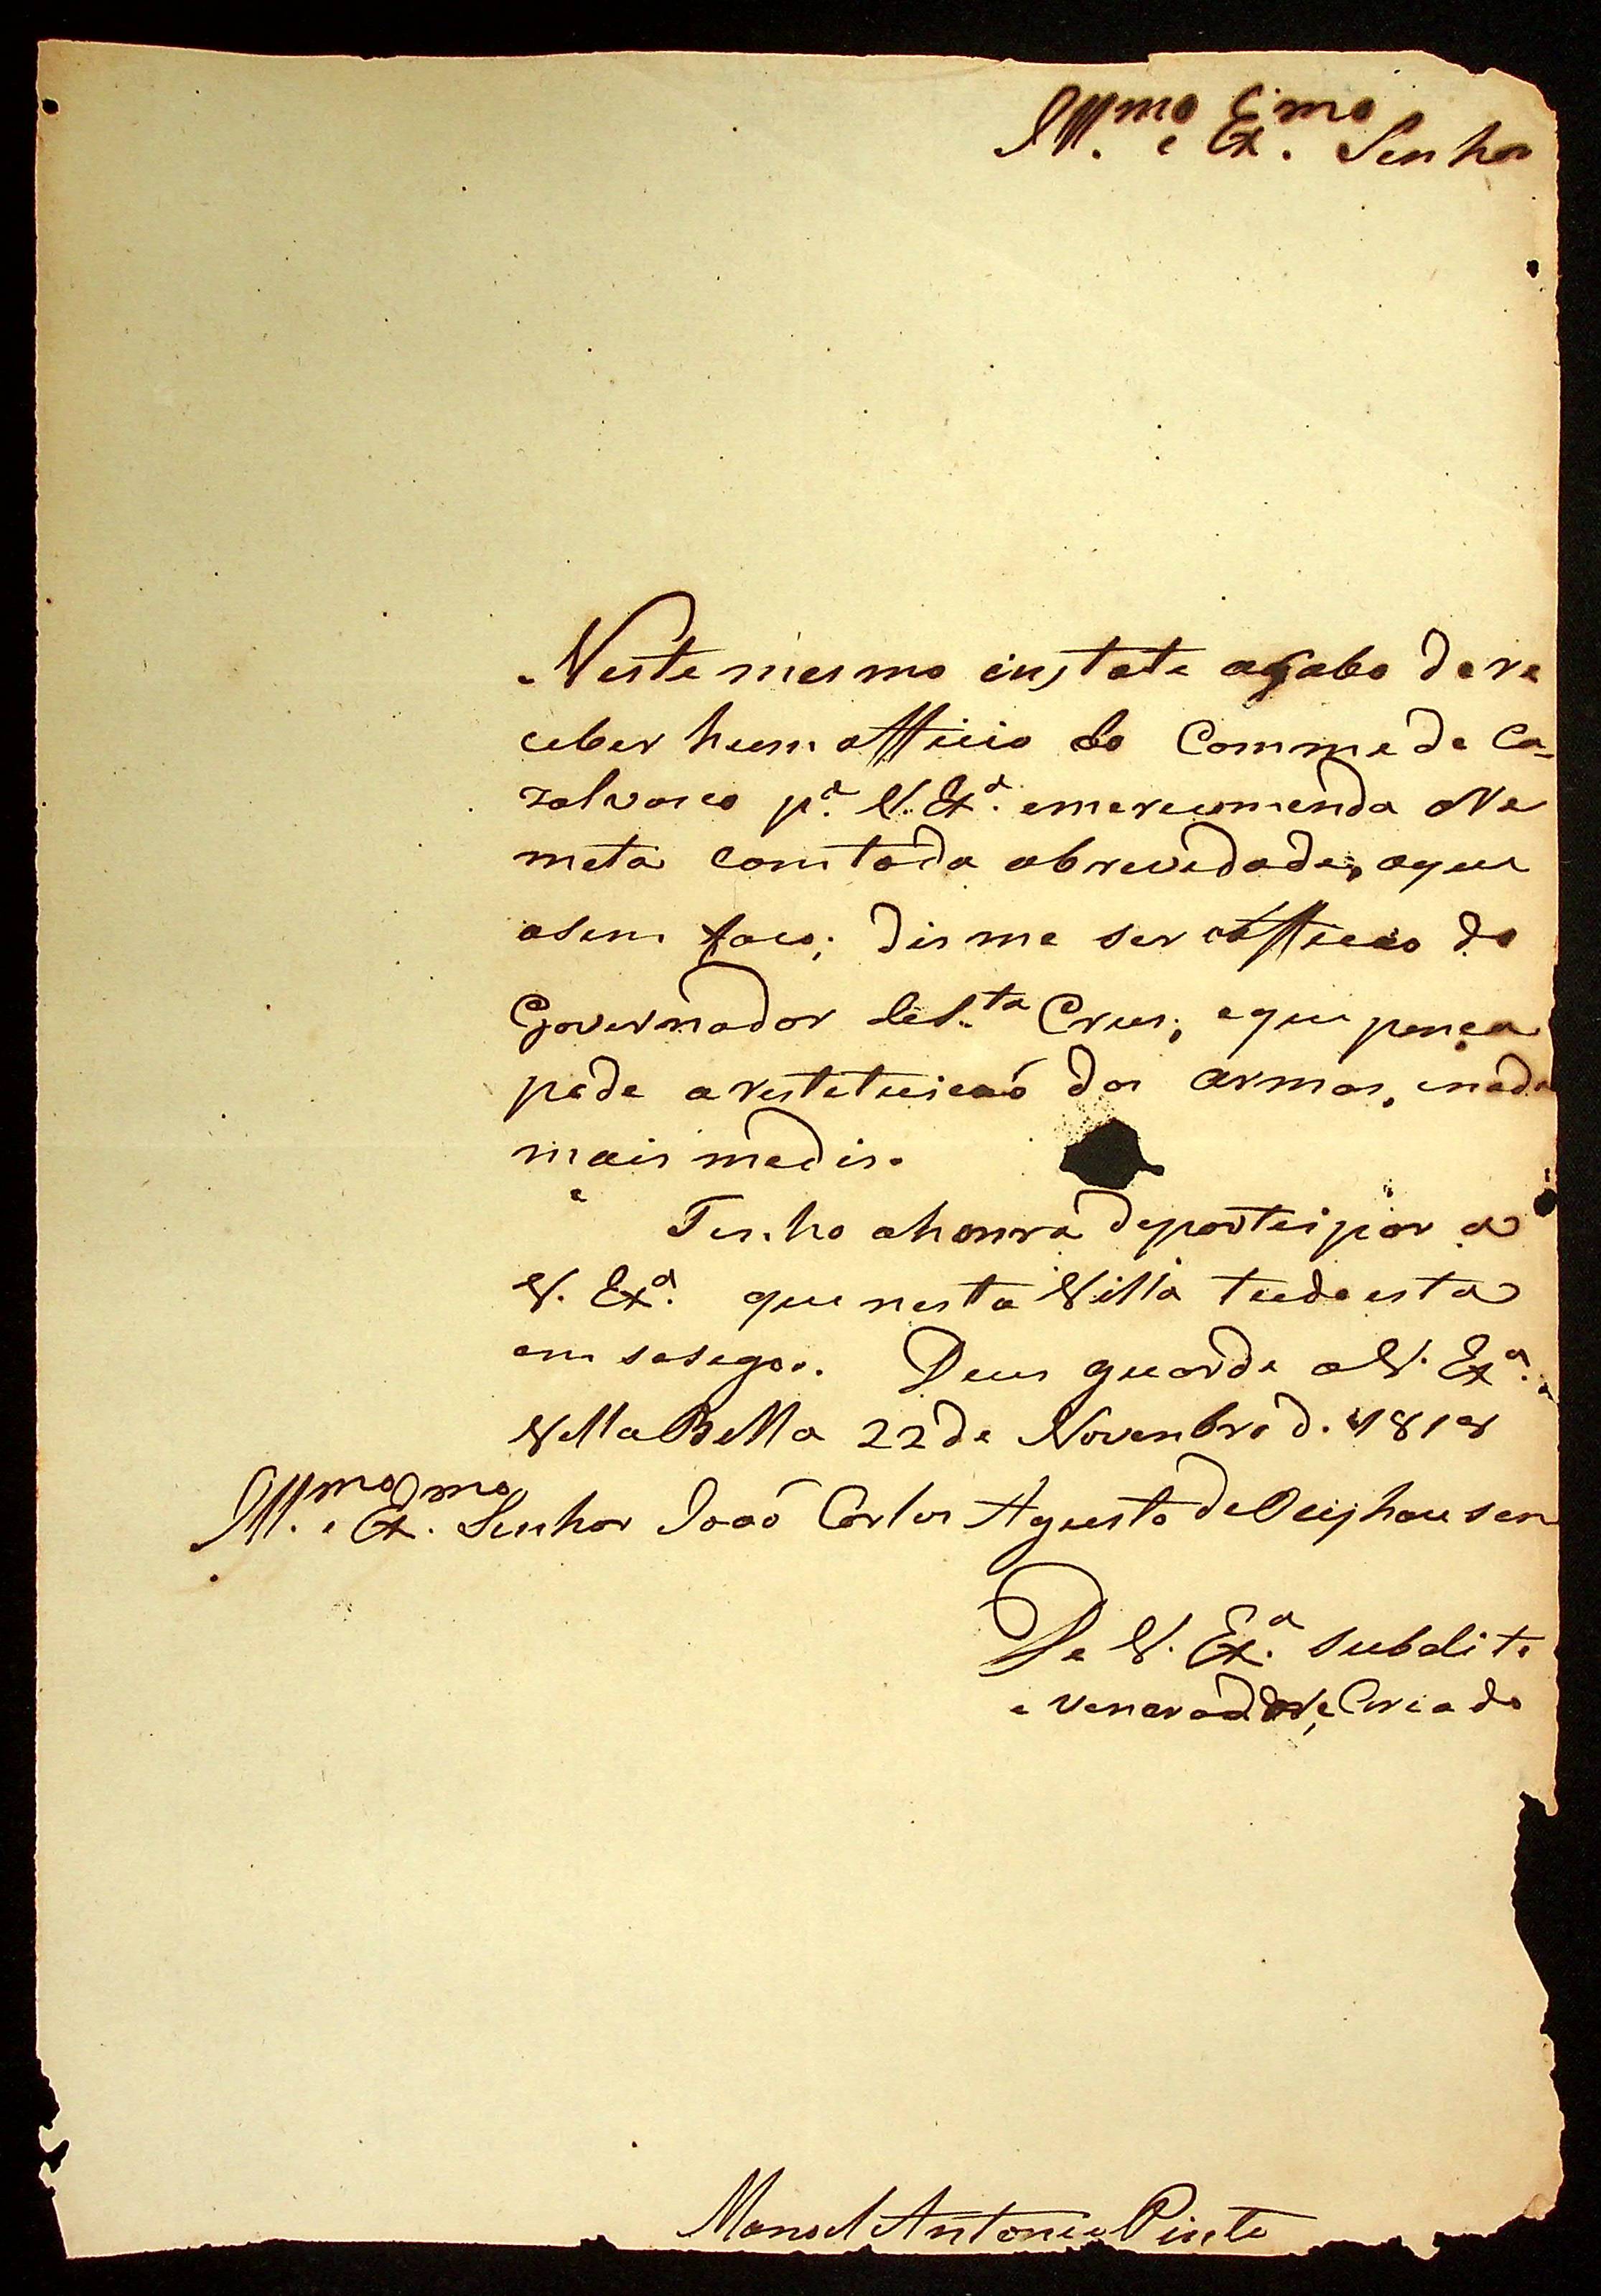 Ill.mo e Ex.mo Senhor
Neste mesmo instate acabo dere
ceber hum officio do Comme de Ca-
zalvasco p.a V. Ex.a emerecomenda o Re
meta com toda abrevedade, aque
asem faco; disme ser officio do
Governador deS.ta Crus; eque pença
pede arestetuicaó das armas, enada
mais medis.
Tenho ahonra departeipar a
V. Ex.a que nesta Villa tudo esta
em sosego. Deus guarde aV. Ex.a
Villa Bella 22 de Novenbro d. 1818
Ill.mo e Ex.mo Senhor Joaó Carlos Agusto de Oeijhausen
De V. Ex.a Subdito
e venerador, e Criado
Manoel Antonio Pinto